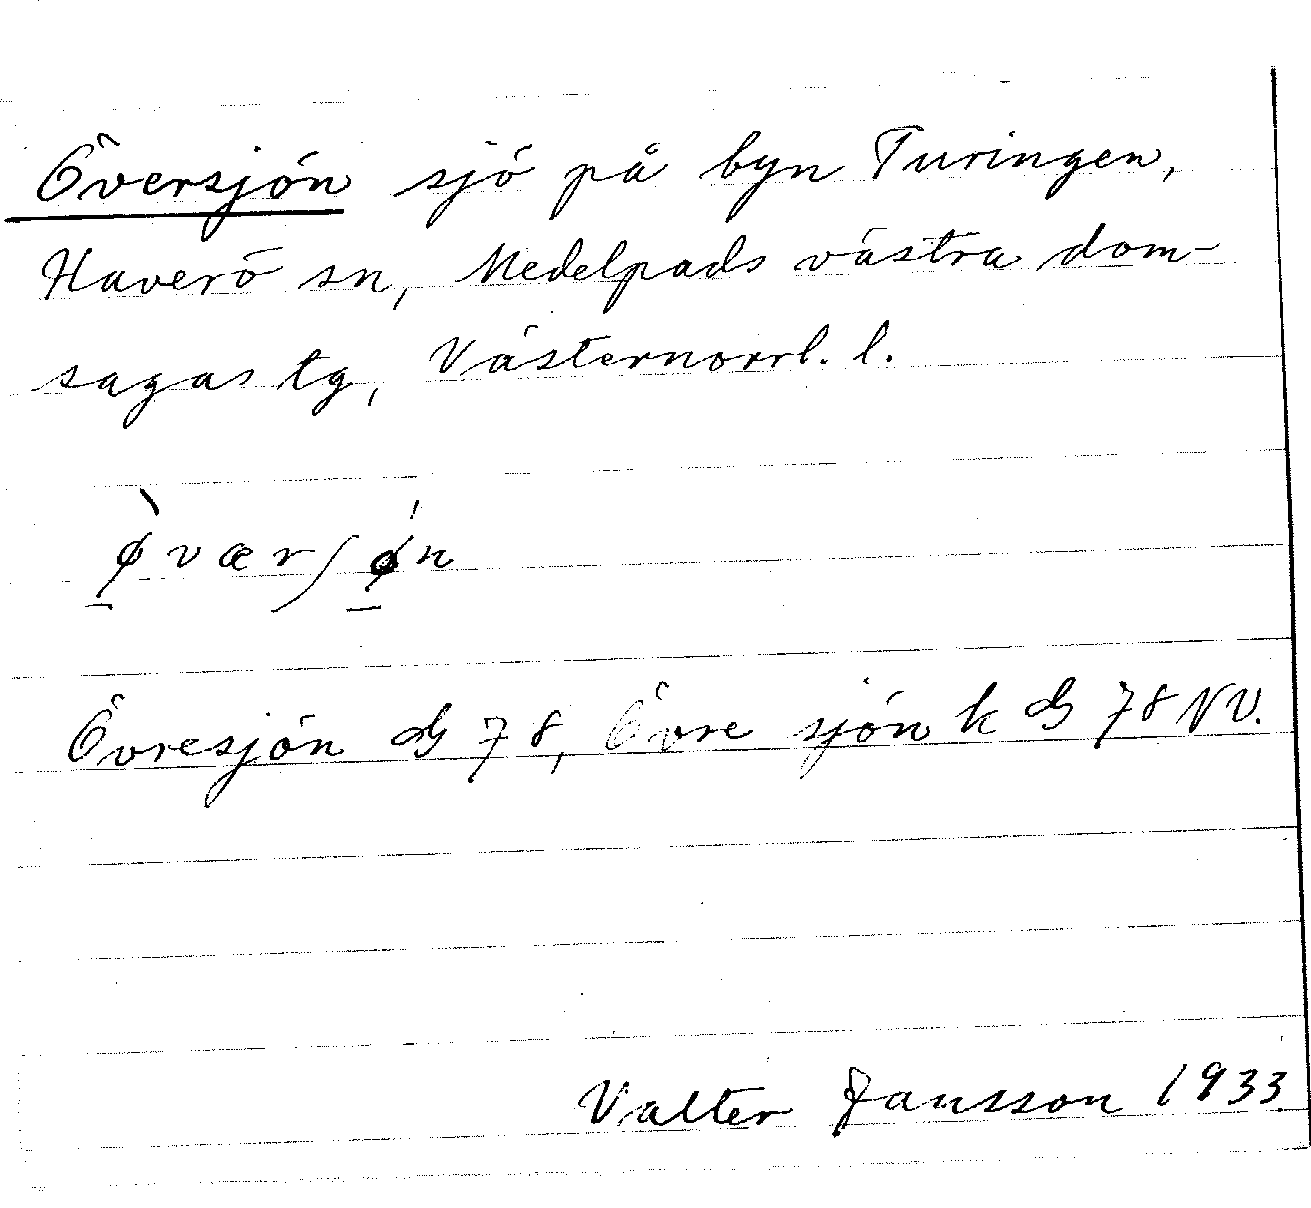 Översjön sjö på byn Turingen,
Haverö sn, Medelpads västra dom-
sagas tg, Västernorrl. l.
ø̀værʃøn
Övresjön GS 78, Övre sjön k GS 78 NV.
Valter Jansson 1933